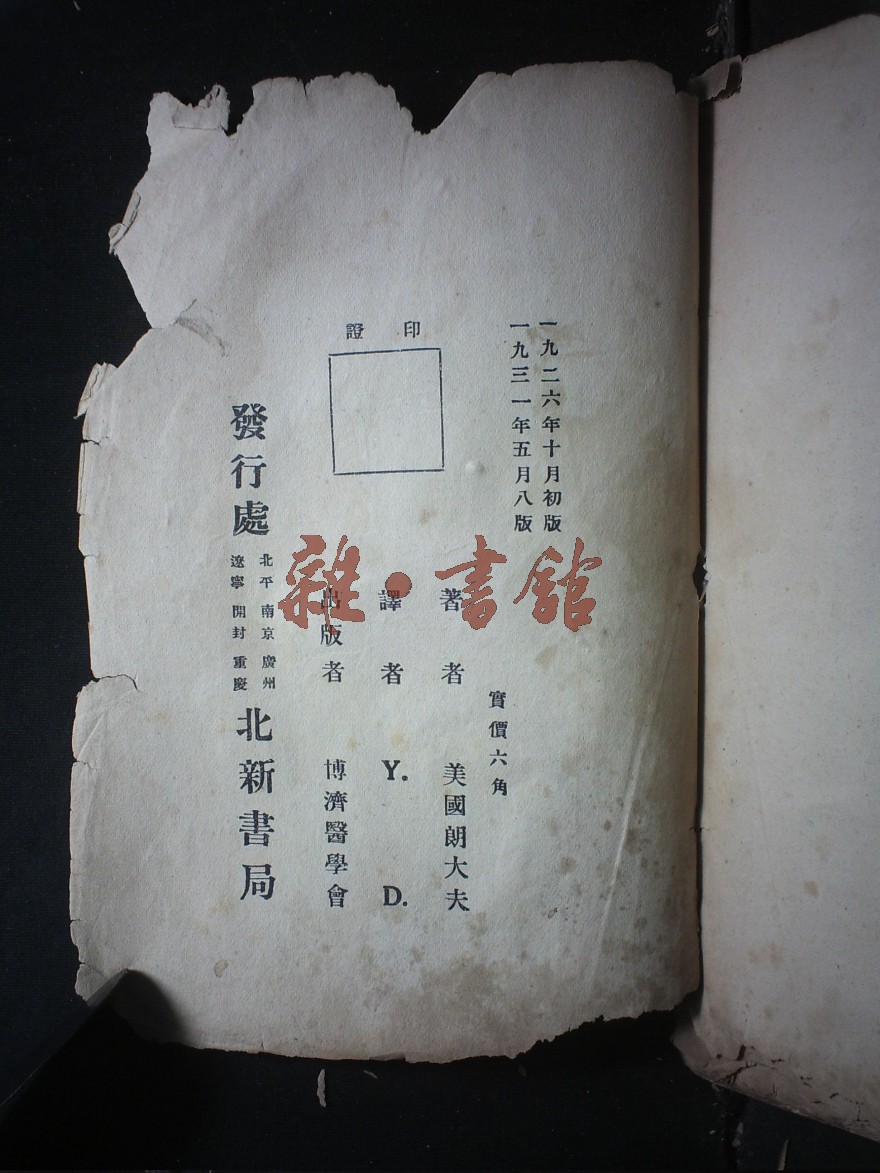 一九二六年十月初版
一九三一年五月八版
實價六角
著者 美國朗大夫
譯者 Y. D.
出版者 博濟醫學會
印證
發行處 北平 南京 廣州 遼寧 開封 重慶 北新書局
雜·書館